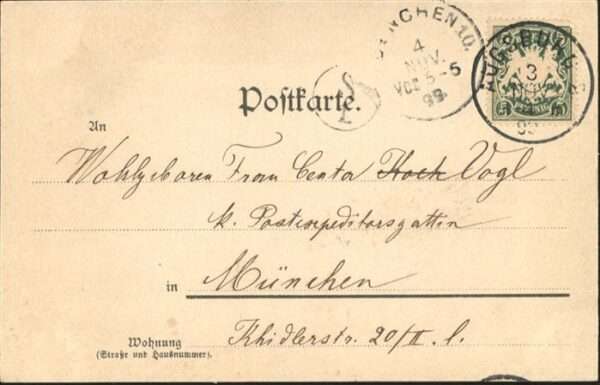 MÜNCHEN 10.
4
NOV.
VOR 5-6
99
AUGSBURG
3
Postkarte.
An
Wohlgeboren Frau Centa Hoch Vogl
k. Postexpeditorsgattin
in München
Wohnung
(Straße und Hausnummer).
Thidlerstr. 20/II. l.